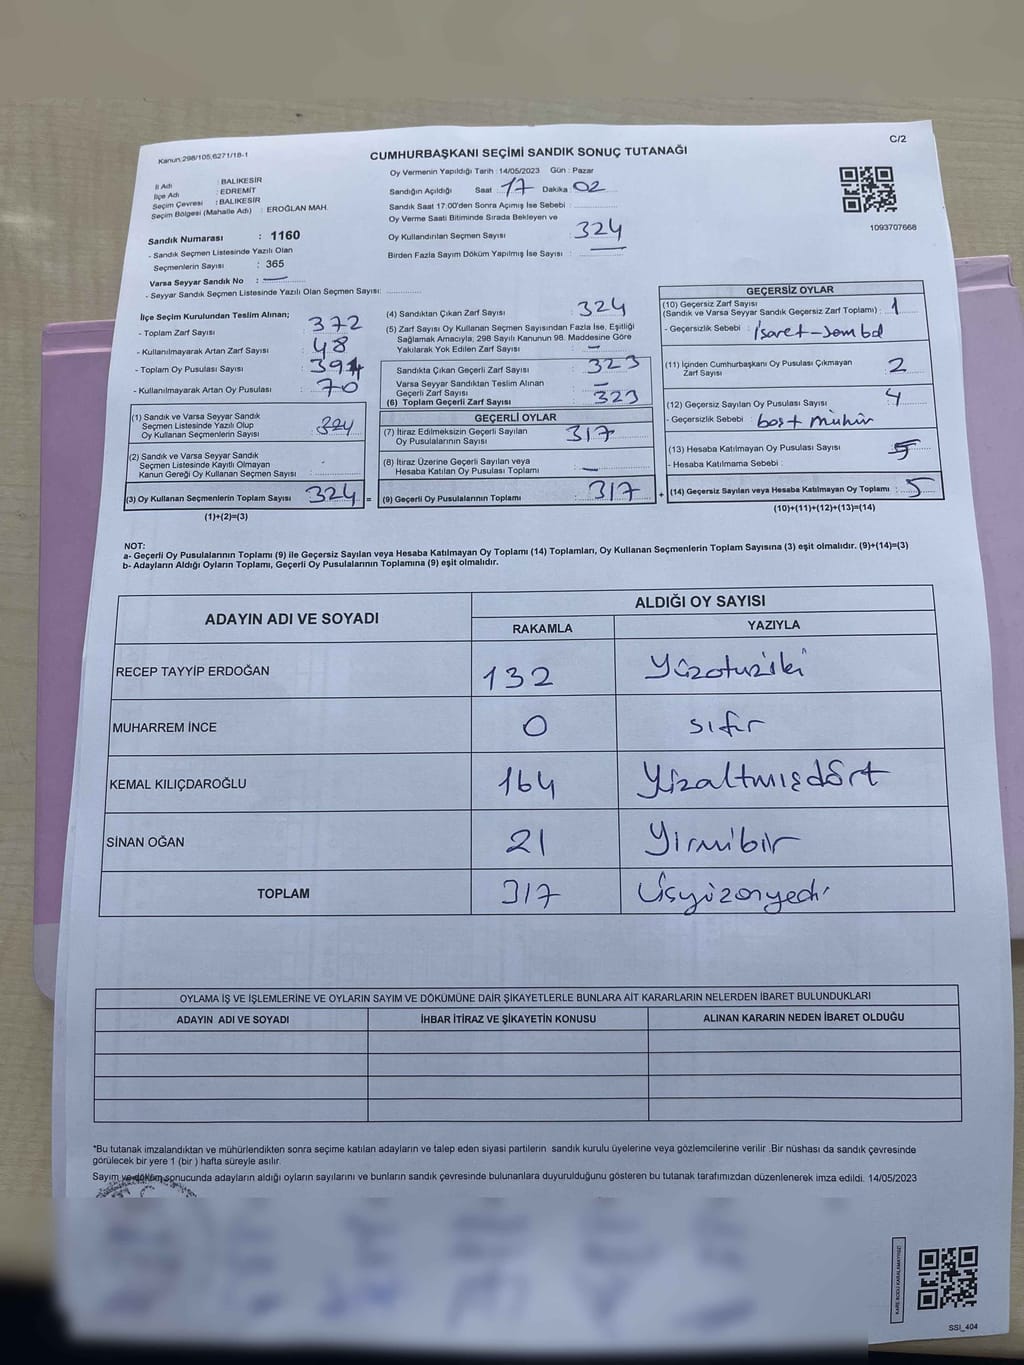 C/2
Kanun:298/105,6271/18-1
CUMHURBAŞKANI SEÇİMİ SANDIK SONUÇ TUTANAĞI
İl Adı : BALIKESİR
İlçe Adı : EDREMİT
Seçim Çevresi : BALIKESİR
Seçim Bölgesi (Mahalle Adı) : EROĞLAN MAH.
Sandık Numarası : 1160
- Sandık Seçmen Listesinde Yazılı Olan
Seçmenlerin Sayısı : 365
Varsa Seyyar Sandık No : —
- Seyyar Sandık Seçmen Listesinde Yazılı Olan Seçmen Sayısı:
Oy Vermenin Yapıldığı Tarih : 14/05/2023 Gün : Pazar
Sandığın Açıldığı Saat : 17 Dakika 02
Sandık Saat 17:00'den Sonra Açımış İse Sebebi :
Oy Verme Saati Bitiminde Sırada Bekleyen ve
Oy Kullandırılan Seçmen Sayısı : 324
Birden Fazla Sayım Döküm Yapılmış İse Sayısı : —
1093707668
İlçe Seçim Kurulundan Teslim Alınan;
- Toplam Zarf Sayısı : 372
- Kullanılmayarak Artan Zarf Sayısı : 48
- Toplam Oy Pusulası Sayısı : 394
- Kullanılmayarak Artan Oy Pusulası : 70
(1) Sandık ve Varsa Seyyar Sandık
Seçmen Listesinde Yazılı Olup
Oy Kullanan Seçmenlerin Sayısı : 324
(2) Sandık ve Varsa Seyyar Sandık
Seçmen Listesinde Kayıtlı Olmayan
Kanun Gereği Oy Kullanan Seçmen Sayısı :
(3) Oy Kullanan Seçmenlerin Toplam Sayısı : 324 =
(1)+(2)=(3)
(4) Sandıktan Çıkan Zarf Sayısı : 324
(5) Zarf Sayısı Oy Kullanan Seçmen Sayısından Fazla İse, Eşitliği
Sağlamak Amacıyla, 298 Sayılı Kanunun 98. Maddesine Göre
Yakılarak Yok Edilen Zarf Sayısı : —
Sandıkta Çıkan Geçerli Zarf Sayısı : 323
Varsa Seyyar Sandıktan Teslim Alınan
Geçerli Zarf Sayısı : —
(6) Toplam Geçerli Zarf Sayısı : 323
GEÇERLİ OYLAR
(7) İtiraz Edilmeksizin Geçerli Sayılan
Oy Pusulalarının Sayısı : 317
(8) İtiraz Üzerine Geçerli Sayılan veya
Hesaba Katılan Oy Pusulası Toplamı : —
(9) Geçerli Oy Pusulalarının Toplamı : 317 +
GEÇERSİZ OYLAR
(10) Geçersiz Zarf Sayısı
(Sandık ve Varsa Seyyar Sandık Geçersiz Zarf Toplamı) : 1
- Geçersizlik Sebebi : işaret-sembol
(11) İçinden Cumhurbaşkanı Oy Pusulası Çıkmayan
Zarf Sayısı : 2
(12) Geçersiz Sayılan Oy Pusulası Sayısı : 4
- Geçersizlik Sebebi : boş+mühür
(13) Hesaba Katılmayan Oy Pusulası Sayısı :
- Hesaba Katılmama Sebebi :
(14) Geçersiz Sayılan veya Hesaba Katılmayan Oy Toplamı : 5
(10)+(11)+(12)+(13)=(14)
NOT:
a- Geçerli Oy Pusulalarının Toplamı (9) ile Geçersiz Sayılan veya Hesaba Katılmayan Oy Toplamı (14) Toplamları, Oy Kullanan Seçmenlerin Toplam Sayısına (3) eşit olmalıdır. (9)+(14)=(3)
b- Adayların Aldığı Oyların Toplamı, Geçerli Oy Pusulalarının Toplamına (9) eşit olmalıdır.
ADAYIN ADI VE SOYADI ALDIĞI OY SAYISI
RAKAMLA YAZIYLA
RECEP TAYYİP ERDOĞAN 132 Yüzotuziki
MUHARREM İNCE 0 sıfır
KEMAL KILIÇDAROĞLU 164 Yüzaltmışdört
SİNAN OĞAN 21 Yirmibir
TOPLAM 317 Üçyüzonyedi
OYLAMA İŞ VE İŞLEMLERİNE VE OYLARIN SAYIM VE DÖKÜMÜNE DAİR ŞİKAYETLERLE BUNLARA AİT KARARLARIN NELERDEN İBARET BULUNDUKLARI
ADAYIN ADI VE SOYADI İHBAR İTİRAZ VE ŞİKAYETİN KONUSU ALINAN KARARIN NEDEN İBARET OLDUĞU
*Bu tutanak imzalandıktan ve mühürlendikten sonra seçime katılan adayların ve talep eden siyasi partilerin sandık kurulu üyelerine veya gözlemcilerine verilir .Bir nüshası da sandık çevresinde
görülecek bir yere 1 (bir ) hafta süreyle asılır.
Sayım ve döküm sonucunda adayların aldığı oyların sayılarını ve bunların sandık çevresinde bulunanlara duyurulduğunu gösteren bu tutanak tarafımızdan düzenlenerek imza edildi. 14/05/2023
SSI_404